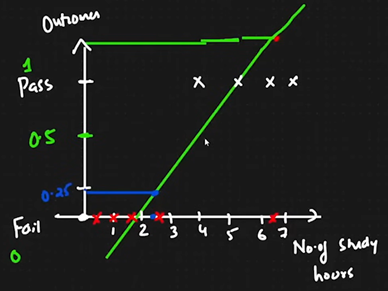 Outcome
1
Pass
0.5
0.25
Fail
0
1 2 3 4 5 6 7
No. of study
hours